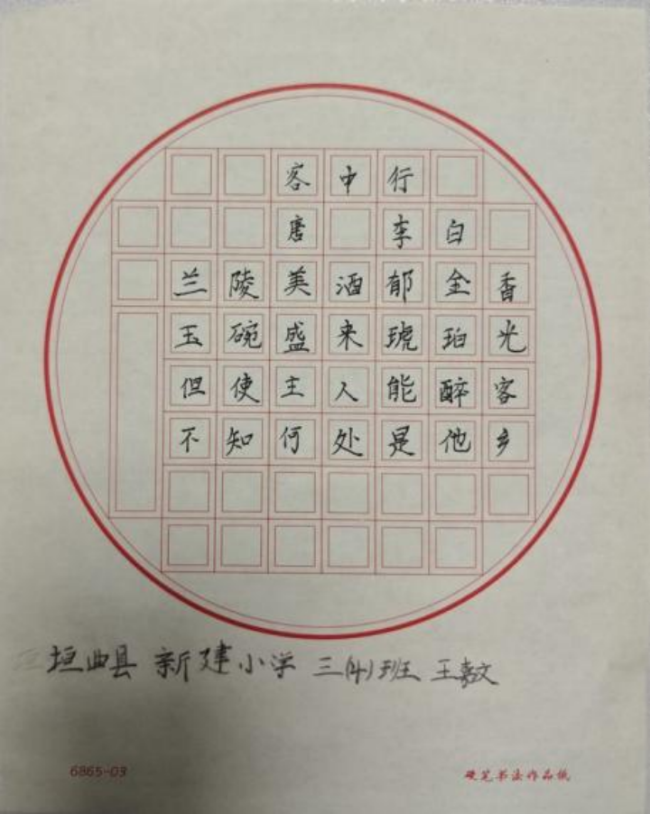 客中行
唐 李白
兰陵美酒郁金香
玉碗盛来琥珀光
但使主人能醉客
不知何处是他乡
垣曲县 新建小学 三(4)班 王嘉文
6865-03
硬笔书法作品纸